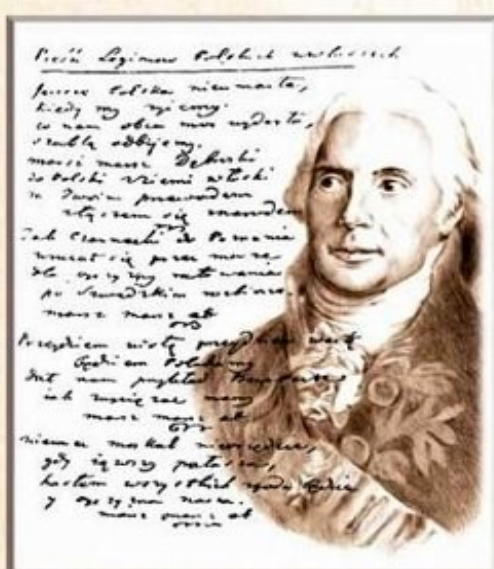 Pieśń Legionów Polskich we Włoszech
Jeszcze Polska nie umarła,
kiedy my żyjemy.
co nam obca moc wydarła,
szablą odbijemy.
marsz marsz Dąbrowski
do Polski z ziemi włoski
za Twoim przewodem
złączem się z narodem
Jak Czarnecki do Poznania
wracał się przez morze
dla ojczyzny ratowania
po szwedzkim rozbiorze
marsz marsz
Przejdziem Wisłę przejdziem Wartę
będziem Polakami
dał nam przykład Bonaparte
jak zwyciężać mamy
marsz marsz
niemiec moskal nie osiędzie,
gdy jąwszy pałasza,
hasłem wszystkich zgoda będzie
y ojczyzna nasza.
marsz marsz